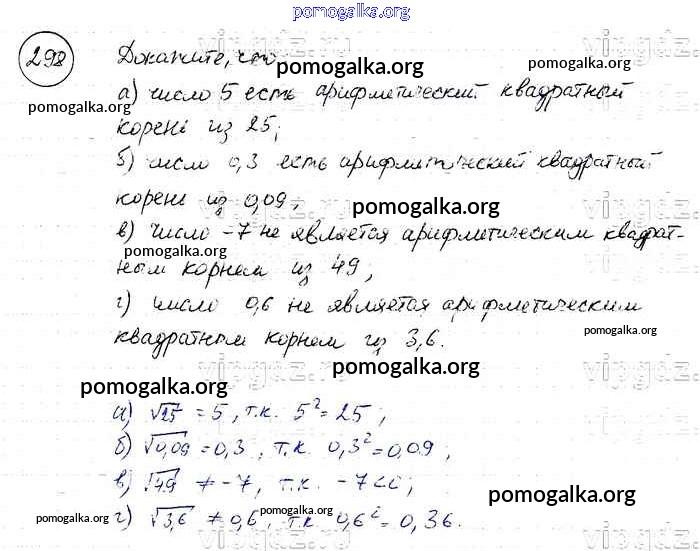 pomogalka.org
298
Докажите, что
pomogalka.org
а) число 5 есть арифметический квадратный
pomogalka.org
корень из 25;
б) число 0,3 есть арифметический квадратный
корень из 0,09;
pomogalka.org
в) число -7 не является арифметическим квадрат-
pomogalka.org
ным корнем из 49;
г) число 0,6 не является арифметическим
квадратным корнем из 3,6.
pomogalka.org
pomogalka.org
pomogalka.org
а) √25 = 5, т.к. 5² = 25;
б) √0,09 = 0,3, т.к. 0,3² = 0,09;
в) √49 ≠ -7, т.к. -7<0;
pomogalka.org
г) √3,6 ≠ 0,6, т.к. 0,6² = 0,36.
pomogalka.org
pomogalka.org